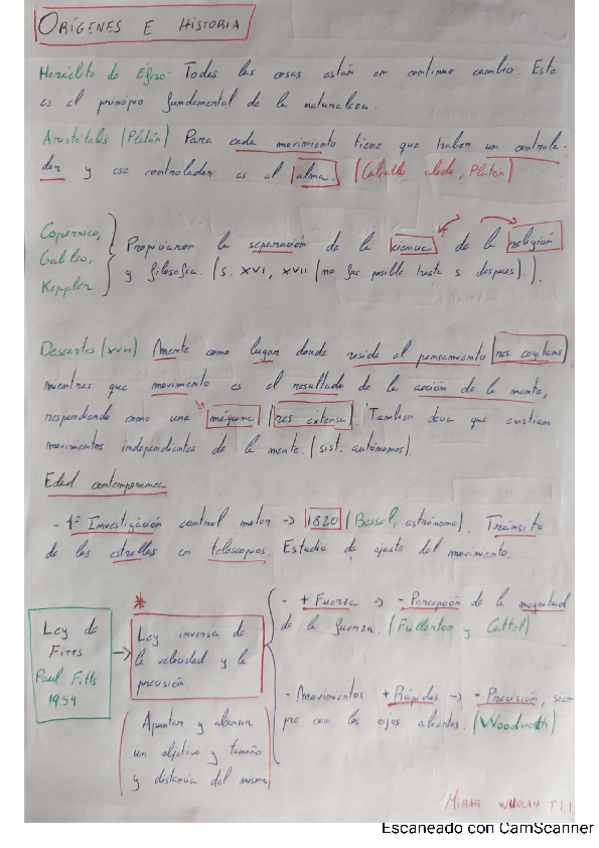 ORÍGENES E HISTORIA
Heráclito de Éfeso: Todas las cosas están en continuo cambio. Este
es el principio fundamental de la naturaleza.
Aristóteles (Platón) Para cada movimiento tiene que haber un controla-
dor y ese controlador es el alma. (Caballo alado, Platón)
Copernico,
Galileo,
Keppler
Propiciaron la separación de la ciencia de la religión
y filosofía. (s. XVI, XVII (no fue posible hasta s. despues).).
Descartes (XVII) Mente como lugar donde reside el pensamiento (res cogitans)
mientras que movimiento es el resultado de la acción de la mente,
respondiendo como una máquina (res extensa). Tambien que existian
movimientos independientes de la mente. (sist. autónomos).
Edad contemporanea
- 1ª Investigación control motor -> 1820 (Bessel, astrónomo). Tránsito
de las estrellas en telescopios. Estudio de ajuste del movimiento.
Ley de
Fitts
Paul Fitts
1954
*
Ley inversa de
la velocidad y la
precisión.
(Apuntar y alcanzar
un objetivo y tamaño
y distancia del mismo)
- + Fuerza -> - Percepción de la magnitud
de la fuerza. (Fullerton y Cattel)
- Movimientos + Rápidos -> - Precisión, siem
pre con los ojos abiertos. (Woodworth)
T.1.1
Escaneado con CamScanner